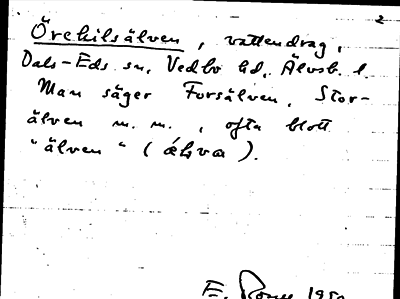 2
Örekilsälven, vattendrag,
Dals-Eds sn, Vedbo hd, Älvsb. l.
Man säger Forsälven, Stor-
älven m. m., ofta blott
"älven" (
E. 195